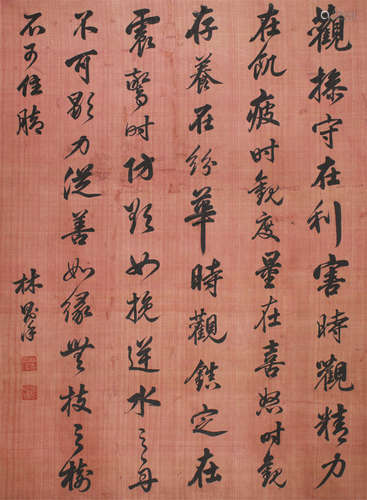 觀操守在利害時觀精力
在飢疲时觀度量在喜怒时觀
存養在紛華時觀鎮定在
震驚时防欲如挽逆水之舟
不可歇力從善如緣無枝之樹
不可住腳
林則徐